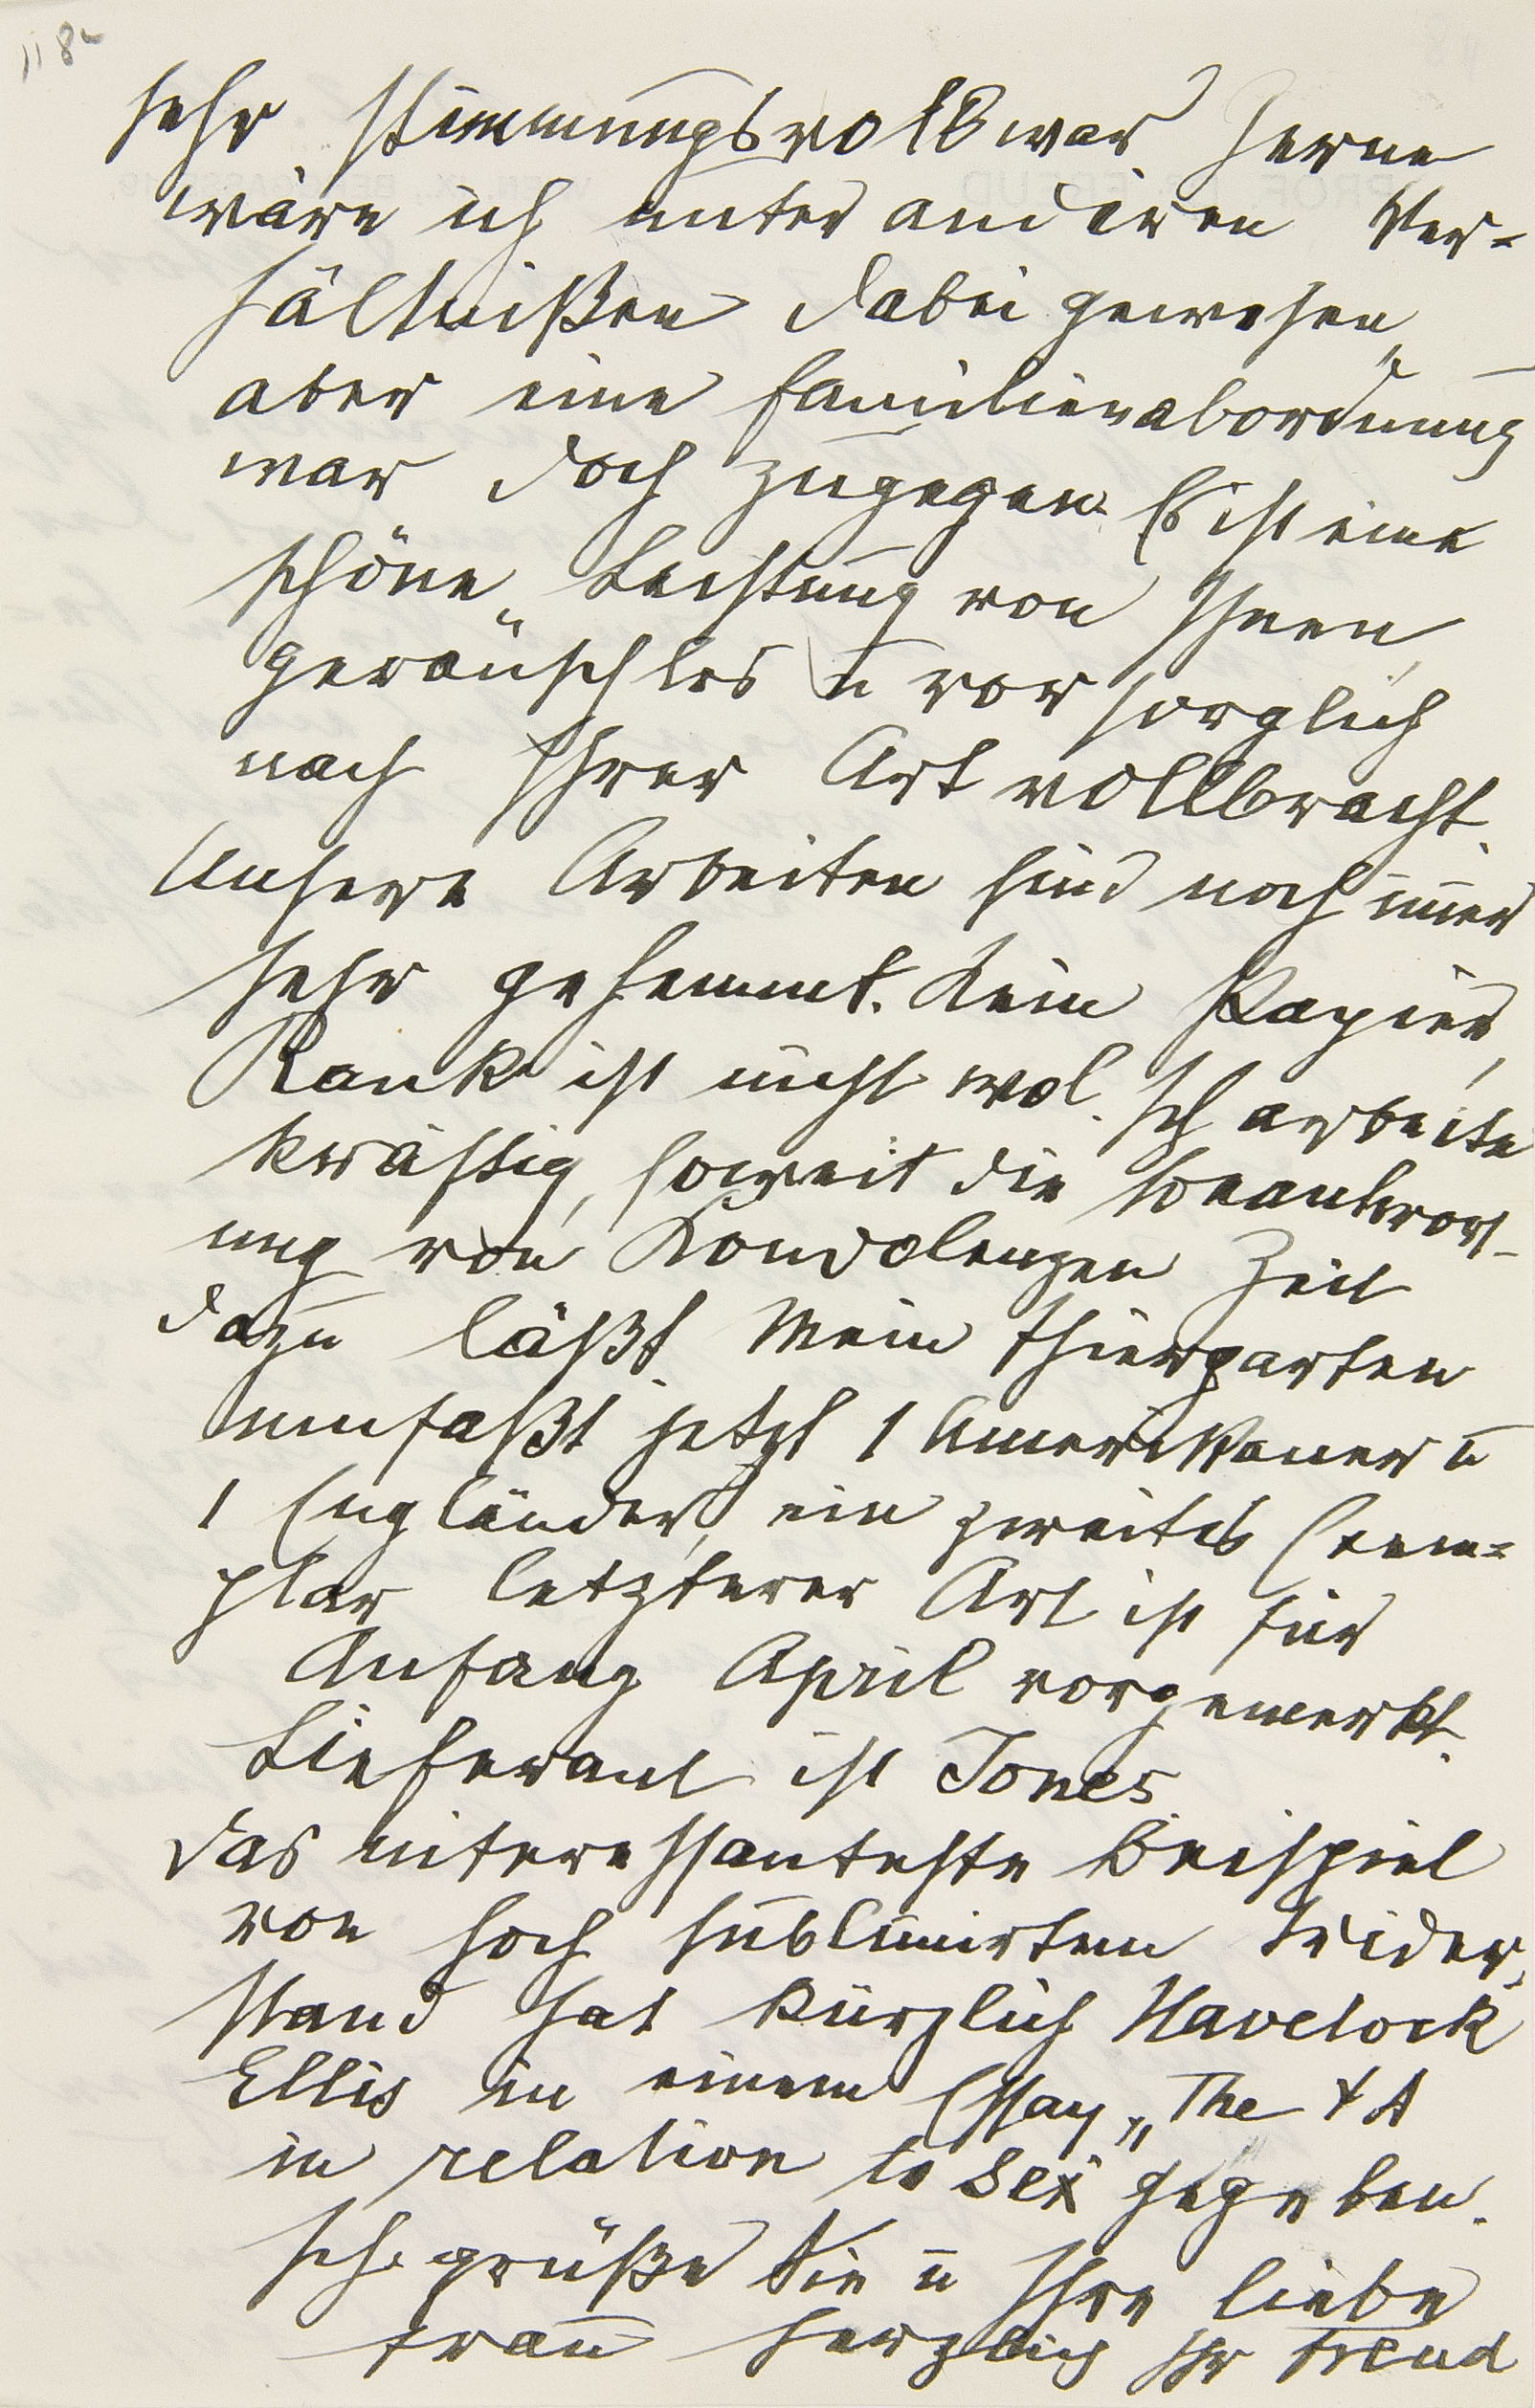 118v
sehr stimmungsvoll war. Gerne
wäre ich unter anderen Ver-
hältnißen dabei gewesen,
aber eine Familienabordnung
war doch zugegen. Es ist eine
schöne Leistung von Ihnen,
geräuschlos u vorsorglich
nach Ihrer Art vollbracht.
Unsere Arbeiten sind noch im̅er
sehr gehemmt. Kein Papier,
Rank ist nicht wol. Ich arbeite
kräftig, soweit die Beantwort-
ung von Kondolenzen Zeit
dazu läßt. Mein Thiergarten
umfaßt jetzt 1 Amerikaner u
1 Engländer, ein zweites Exem-
plar letzterer Art ist für
Anfang April vorgemerkt.
Lieferant ist Jones.
Das interessanteste Beispiel
von hoch sublimirtem Wider-
stand hat kürzlich Havelock
Ellis in einem Essay „The ΨA
in relation to sex" gegeben.
Ich grüße Sie u Ihre liebe
Frau herzlich Ihr Freud